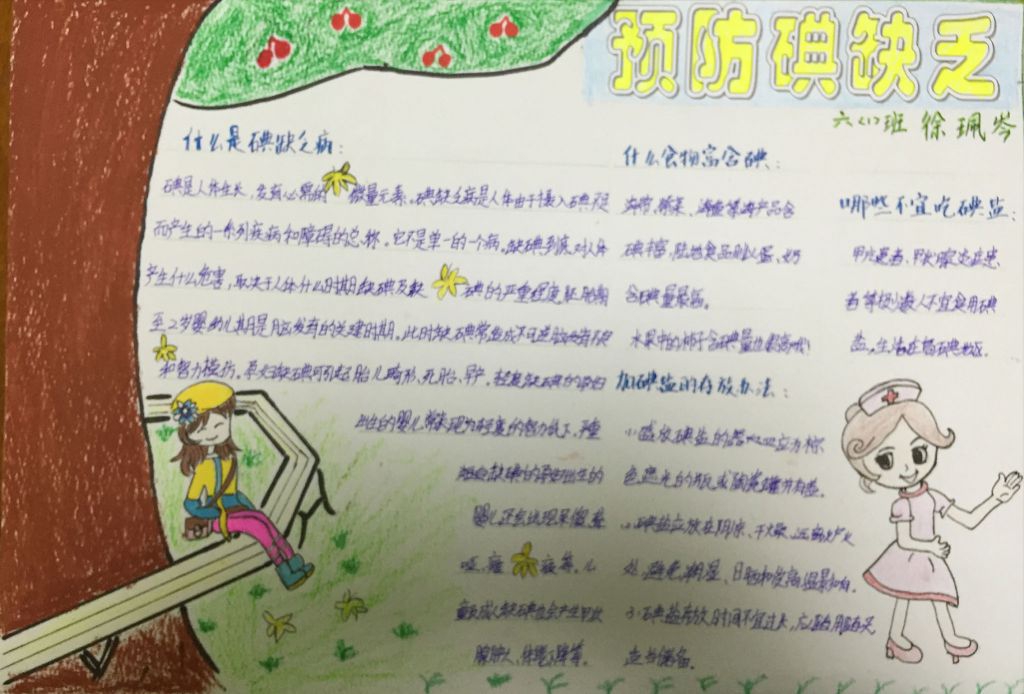 预防碘缺乏
六<1>班 徐珮岑
什么是碘缺乏病：
碘是人体生长，发育必需的微量元素。碘缺乏病是人体由于摄入碘不足
而产生的一系列疾病和障碍的总称。它不是单一的一个病。缺碘到底对人体
产生什么危害，取决于人体什么时期缺碘及缺碘的严重程度胚胎期
至2岁婴幼儿期是脑发育的关键时期。此时缺碘常造成不可逆脑发育不良
和智力损伤。孕妇缺碘可引起胎儿畸形、死胎、早产。轻度缺碘的孕妇
出生的婴儿常表现为轻度的智力低下，严重
缺碘的孕妇出生的
婴儿还会出现呆傻、聋
哑、瘫痪等。儿
童或成人缺碘也会产生甲状
腺肿大，体能下降等。
什么食物富含碘：
海带、紫菜、海鱼等海产品含
碘丰富，陆地食品则以蛋、奶
含碘量最高。
水果中的柿子含碘量也很高哦！
加碘盐的存放办法：
1.盛放碘盐的器皿应为棕
色遮光的瓶或陶瓷罐并有盖。
2.碘盐应放在阴凉、干燥、远离炉火
处，避免潮湿、日晒和
3.碘盐存放时间不宜过长，应随用随买
哪些不宜吃碘盐：
甲亢患者、甲状腺炎症患
者等极少数人不宜食用碘
盐。生活在高碘地区。